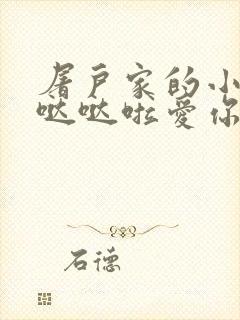 屠户家的小
哒哒啦爱你
石德